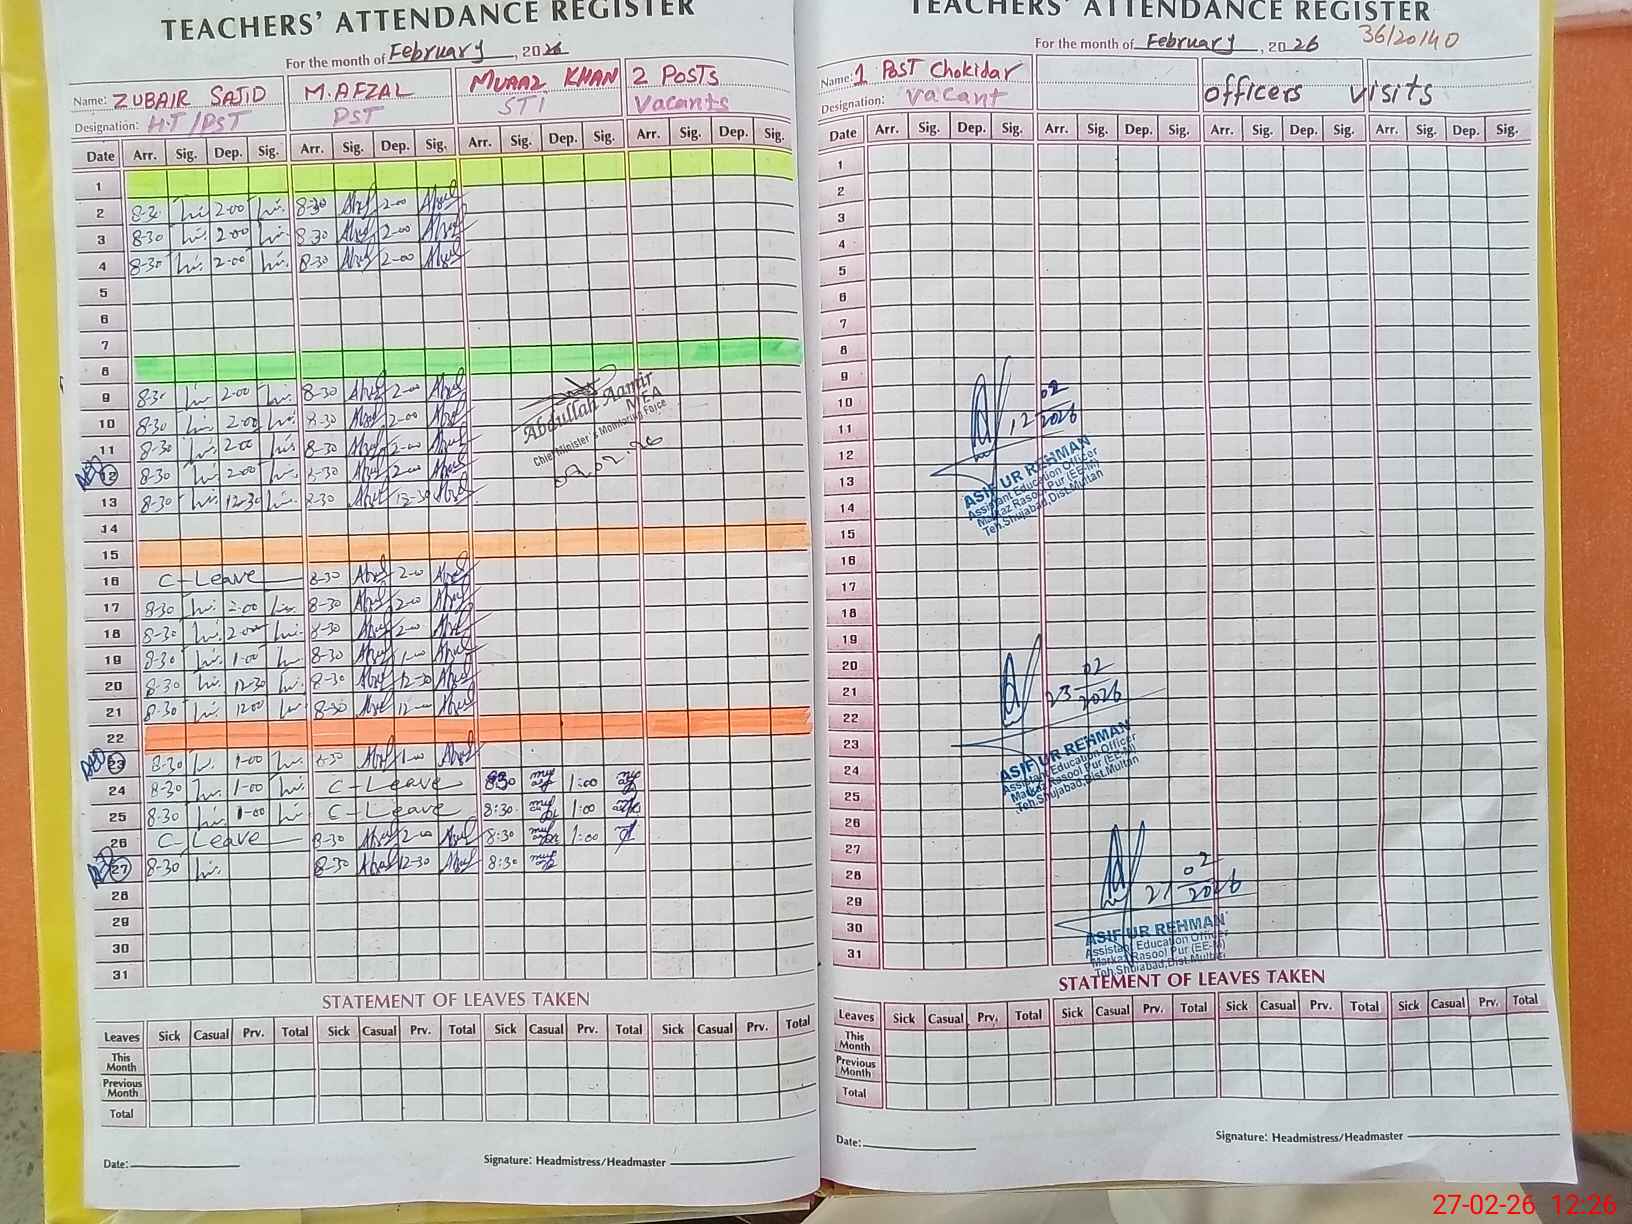 TEACHERS' ATTENDANCE REGISTER
For the month of February, 2026
Name: ZUBAIR SAJID M.AFZAL MUAAZ KHAN 2 POSTS
Designation: H.T/PST PST STI Vacants
Date Arr. Sig. Dep. Sig. Arr. Sig. Dep. Sig. Arr. Sig. Dep. Sig. Arr. Sig. Dep. Sig.
1
2 8-30 2-00 8-30 2-00
3 8-30 2-00 8-30 2-00
4 8-30 2-00 8-30 2-00
5
6
7
8
9 8-30 2-00 8-30 2-00
10 8-30 2-00 8-30 2-00
11 8-30 2-00 8-30 2-00
12 8-30 2-00 8-30 2-00
13 8-30 12-30 8-30 12-30
Abdullah Aamir
MEA
Chief Minister's Monitoring Force
14
15
16 C-Leave 8-30 2-00
17 8-30 2-00 8-30 2-00
18 8-30 2-00 8-30 2-00
19 8-30 1-00 8-30 1-00
20 8-30 12-30 8-30 12-30
21 8-30 12-00 8-30 12-00
22
23 8-30 1-00 8-30 1-00
24 8-30 1-00 C-Leave 8:30 1:00
25 8-30 1-00 C-Leave 8:30 1:00
26 C-Leave 8-30 2-00 8:30 1:00
27 8-30 8-30 12-30 8:30
28
29
30
31
STATEMENT OF LEAVES TAKEN
Leaves Sick Casual Prv. Total Sick Casual Prv. Total Sick Casual Prv. Total Sick Casual Prv. Total
This Month
Previous Month
Total
Date:
Signature: Headmistress/Headmaster
TEACHERS' ATTENDANCE REGISTER
For the month of February, 2026 36/20/40
Name: 1 Post Chokidar officers visits
Designation: vacant
Date Arr. Sig. Dep. Sig. Arr. Sig. Dep. Sig. Arr. Sig. Dep. Sig. Arr. Sig. Dep. Sig.
1
2
3
4
5
6
7
8
9
10
11
12
13
14
15
16
17
18
19
20
21
22
23
24
25
26
27
28
29
30
31
12 02 2026
ASIF UR REHMAN
Assistant Education Officer
Markaz Rasool Pur (EE-M)
Teh.Shujabad,Dist.Multan
23 02 2026
ASIF UR REHMAN
Assistant Education Officer
Markaz Rasool Pur (EE-M)
Teh.Shujabad,Dist.Multan
02 2026
ASIF UR REHMAN
Assistant Education Officer
Markaz Rasool Pur (EE-M)
Teh.Shujabad,Dist.Multan
STATEMENT OF LEAVES TAKEN
Leaves Sick Casual Prv. Total Sick Casual Prv. Total Sick Casual Prv. Total Sick Casual Prv. Total
This Month
Previous Month
Total
Date:
Signature: Headmistress/Headmaster
27-02-26 12:26